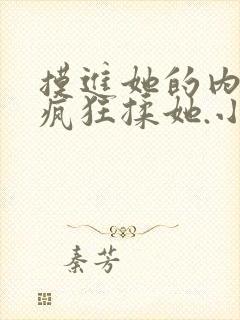 摸进她的内
疯狂揉她.小
秦芳